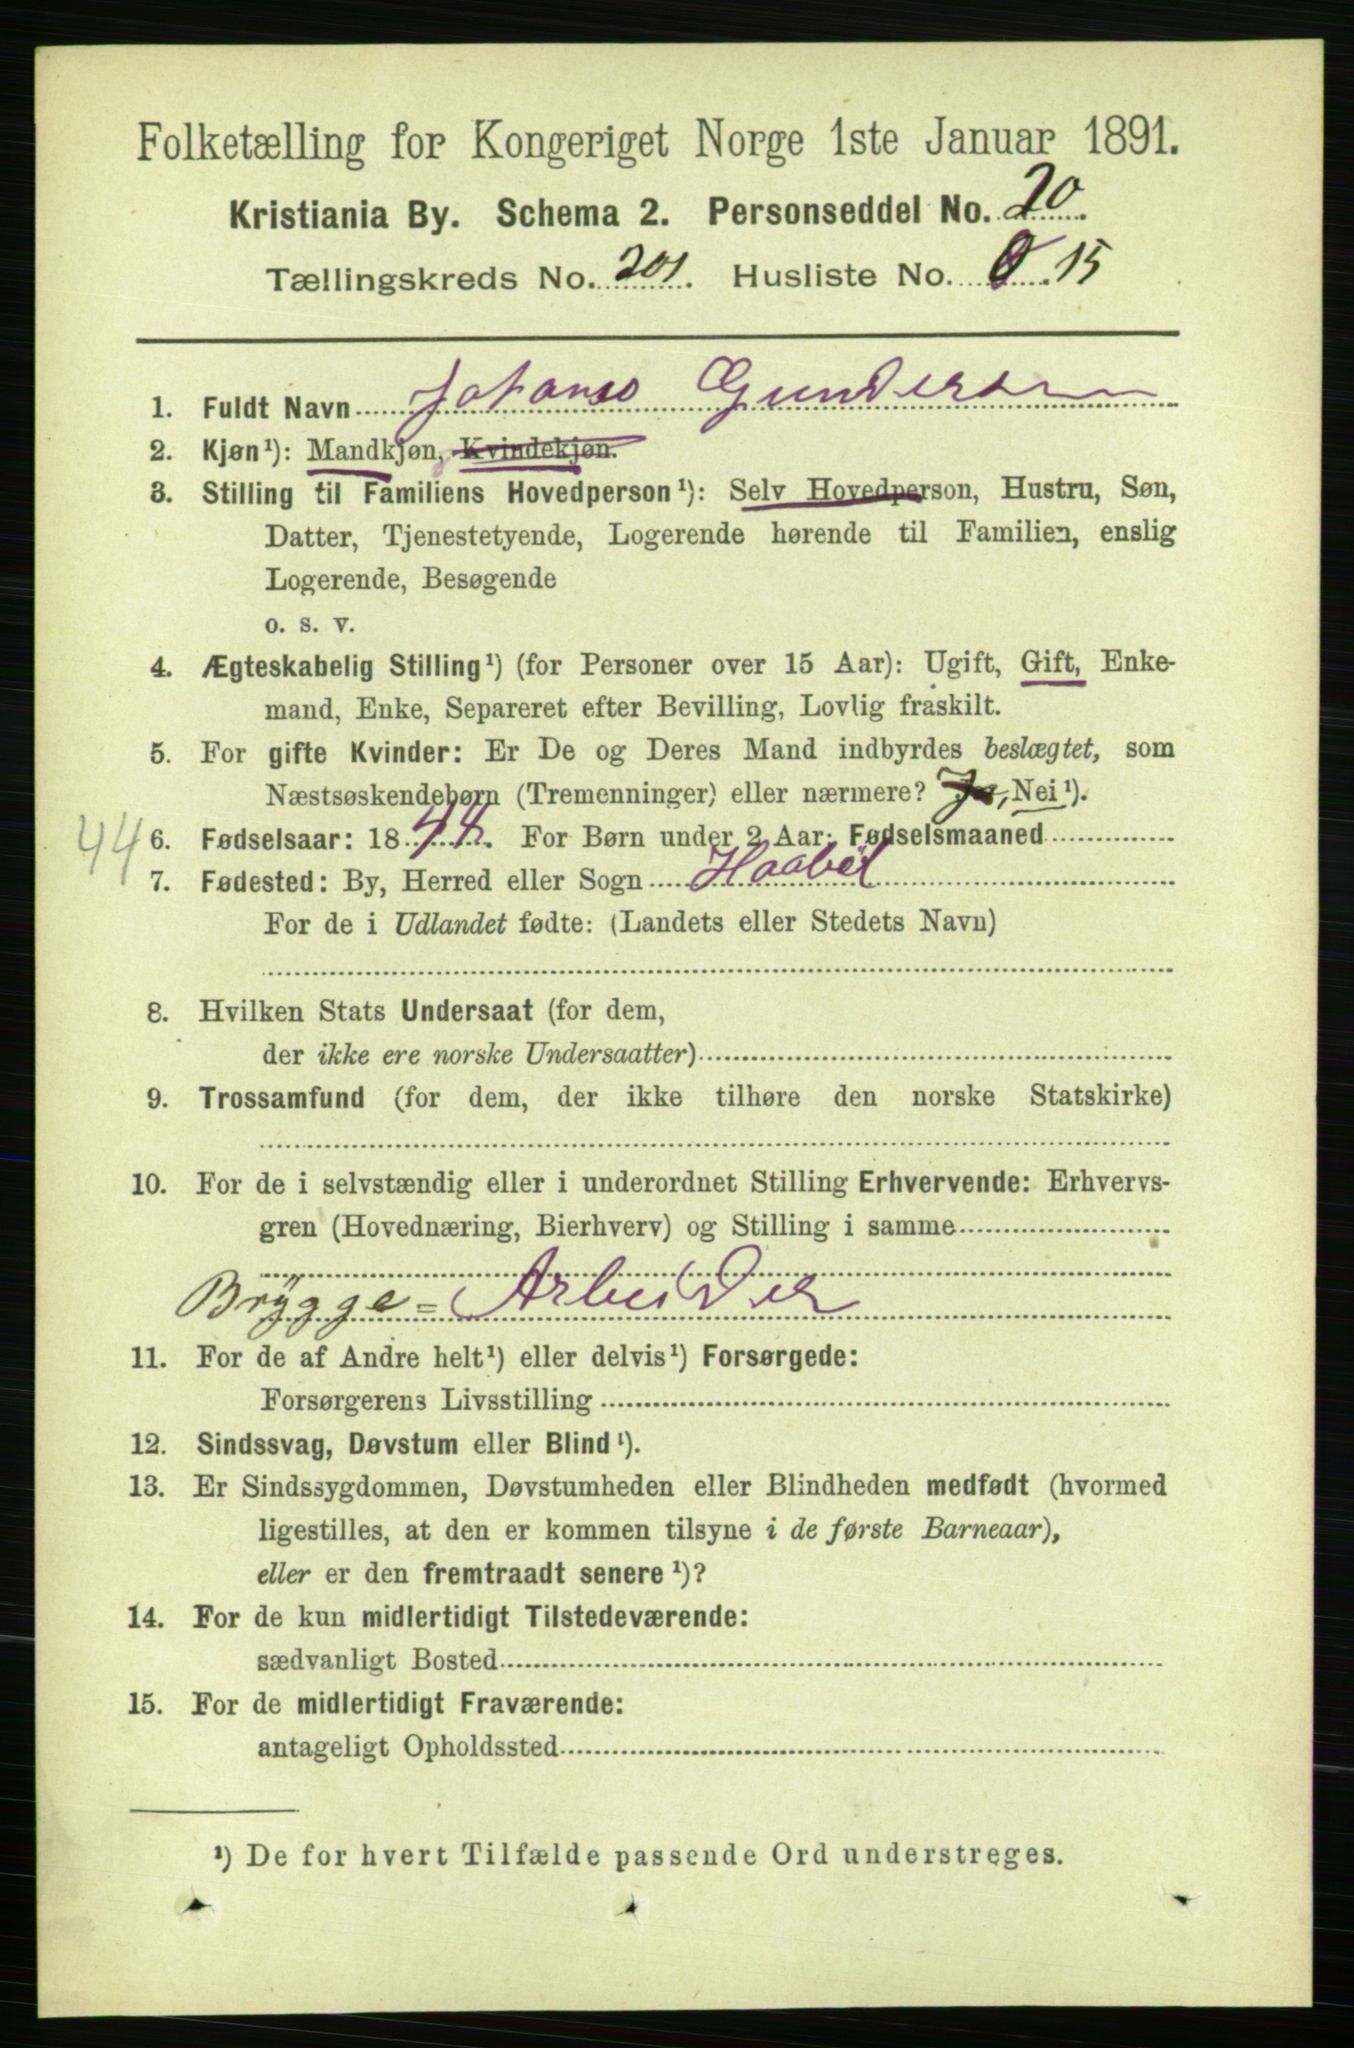 Folketælling for Kongeriget Norge 1ste Januar 1891.
Kristiania By. Schema 2. Personseddel No. 20.
Tællingskreds No. 201. Husliste No. 15
1. Fuldt Navn Johanes Gundersen
2. Kjøn¹): Mandkjøn, Kvindekjøn.
3. Stilling til Familiens Hovedperson¹): Selv Hovedperson, Hustru, Søn,
Datter, Tjenestetyende, Logerende hørende til Familien, enslig
Logerende, Besøgende
o. s. v.
4. Ægteskabelig Stilling¹) (for Personer over 15 Aar): Ugift, Gift, Enke-
mand, Enke, Separeret efter Bevilling, Lovlig fraskilt.
5. For gifte Kvinder: Er De og Deres Mand indbyrdes beslægtet, som
Næstsøskendebørn (Tremenninger) eller nærmere? Ja, Nei¹).
44 6. Fødselsaar: 1844. For Børn under 2 Aar: Fødselsmaaned
7. Fødested: By, Herred eller Sogn Haabøl
For de i Udlandet fødte: (Landets eller Stedets Navn)
8. Hvilken Stats Undersaat (for dem,
der ikke ere norske Undersaatter)
9. Trossamfund (for dem, der ikke tilhøre den norske Statskirke)
10. For de i selvstændig eller i underordnet Stilling Erhvervende: Erhvervs-
gren (Hovednæring, Bierhverv) og Stilling i samme
Brygge= Arbeider
11. For de af Andre helt¹) eller delvis¹) Forsørgede:
Forsørgerens Livsstilling
12. Sindssvag, Døvstum eller Blind¹).
13. Er Sindssygdommen, Døvstumheden eller Blindheden medfødt (hvormed
ligestilles, at den er kommen tilsyne i de første Barneaar),
eller er den fremtraadt senere¹)?
14. For de kun midlertidigt Tilstedeværende:
sædvanligt Bosted
15. For de midlertidigt Fraværende:
antageligt Opholdssted
¹) De for hvert Tilfælde passende Ord understreges.